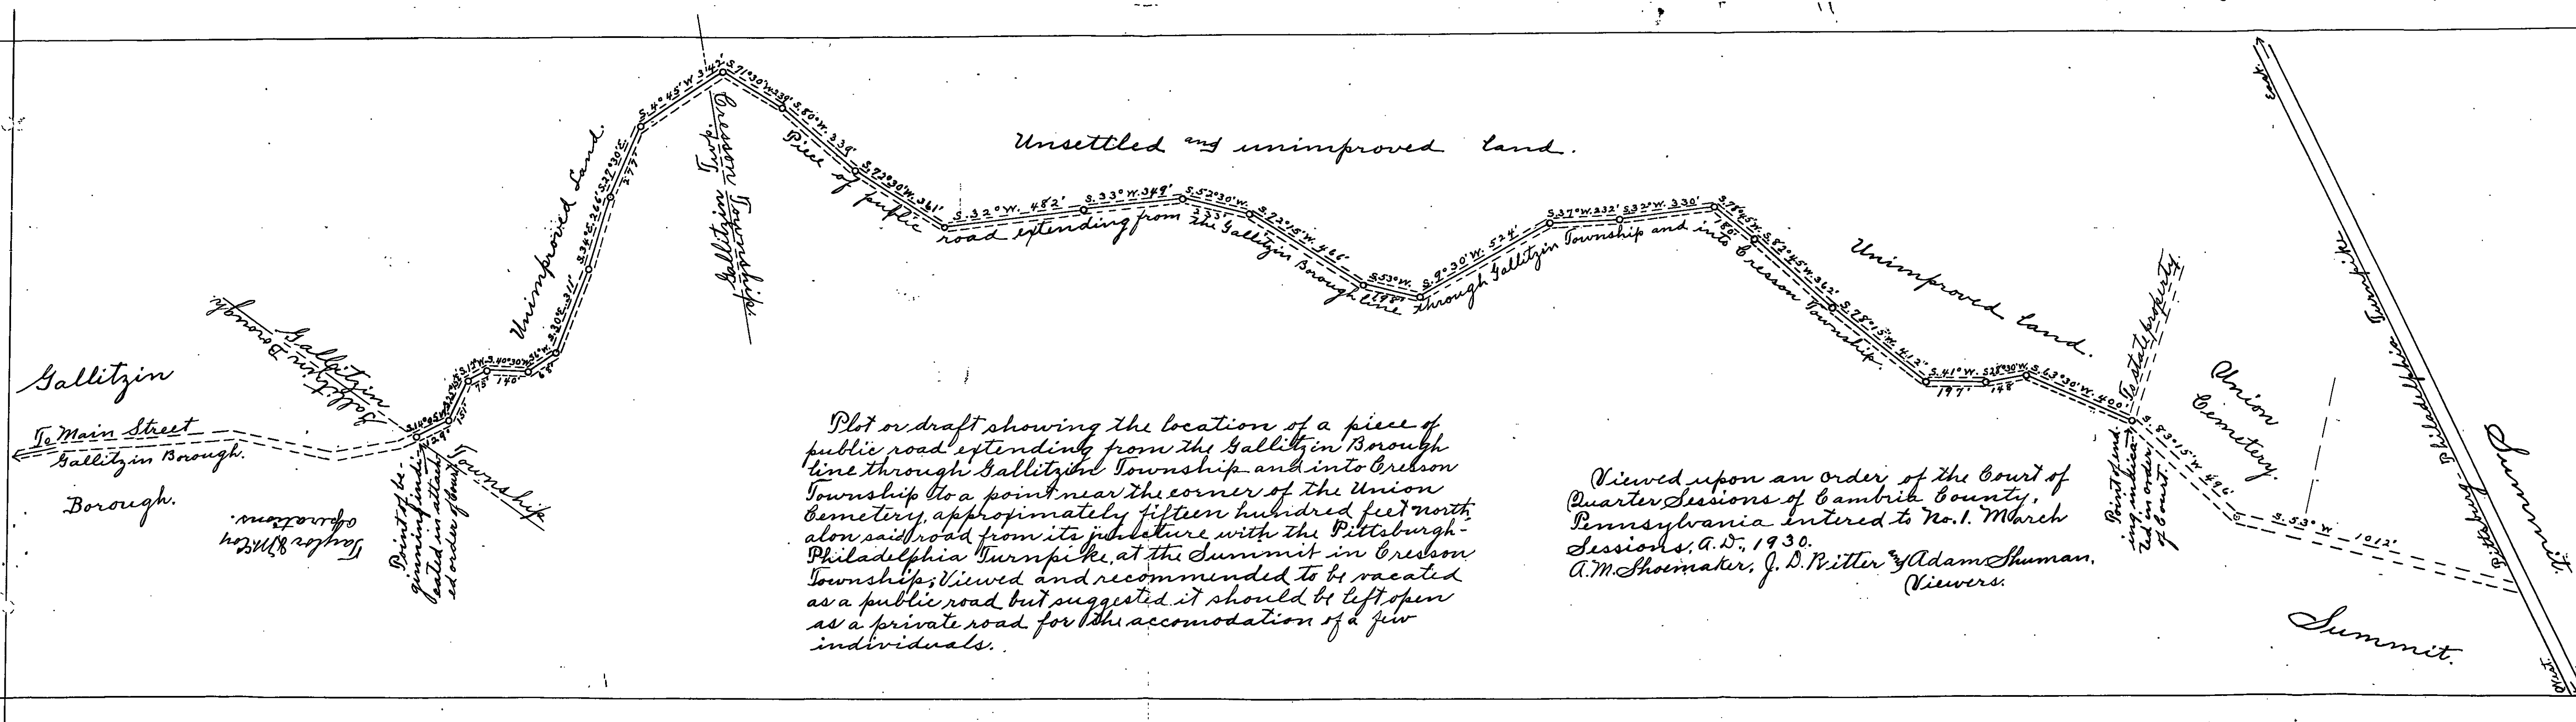 Gallitzin
To Main Street
Gallitzin Borough.
Borough.
Gallitzin Borough
Gallitzin
Township
Taylor & McCoy
operations.
Point of be-
ginning indi-
cated in attach-
ed order of Court
129'
151'
S.12°W.
75'
S.40°30'W.
140'
S.6°W.
68'
S.30°E. 311'
S.34°E. 266'
S.27°30'E.
277'
S.4°45'W. 342'
Unimproved Land.
Gallitzin Twp.
Cresson Township.
Gallitzin Township
S.71°30'W. 239'
S.80°W. 339'
S.72°30'W. 361'
S.32°W. 482'
S.33°W. 349'
S.52°30'W.
233'
S.72°15'W. 466'
S.53°W.
198'
S.9°30'W. 524'
S.37°W. 232'
S.32°W. 330'
S.78°45'W.
180'
S.82°45'W. 362'
S.78°15'W. 412'
S.41°W.
197'
S.28°30'W.
148'
S.63°30'W. 400'
Piece of public road extending from the Gallitzin Borough line through Gallitzin Township and into Cresson Township.
Unsettled and unimproved land.
Unimproved land.
To state property.
Point of end-
ing, indica-
ted in order
of Court.
S.83°15'W. 496'
S.53°W 1012'
Union
Cemetery.
East.
Pittsburg-Philadelphia Turnpike
West.
Summit.
Summit.
Plot or draft showing the location of a piece of
public road extending from the Gallitzin Borough
line through Gallitzin Township and into Cresson
Township to a point near the corner of the Union
Cemetery, approximately fifteen hundred feet north
alon said road from its juncture with the Pittsburgh-
Philadelphia Turnpike, at the Summit in Cresson
Township; Viewed and recommended to be vacated
as a public road but suggested it should be left open
as a private road for the accomodation of a few
individuals.
Viewed upon an order of the Court of
Quarter Sessions of Cambria County,
Pennsylvania entered to No. 1. March
Sessions, A.D., 1930.
A.M. Shoemaker, J. D. Ritter and Adam Shuman,
Viewers.